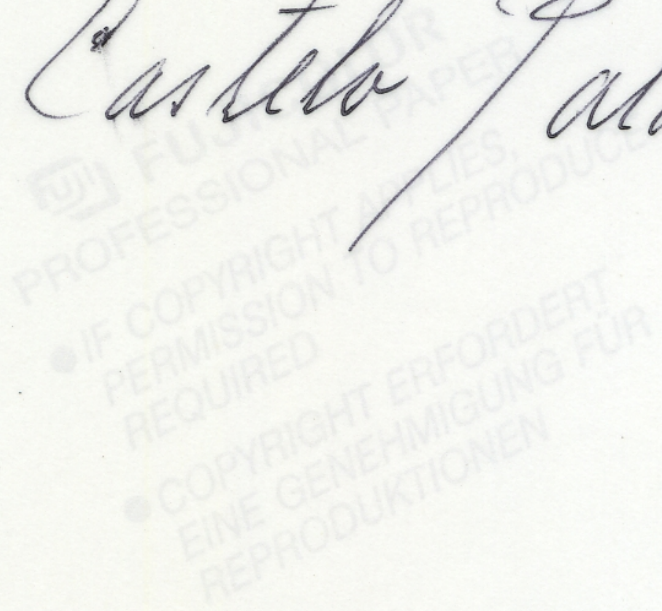 Castelo
FUJICOLOR
FUJI PROFESSIONAL PAPER
● IF COPYRIGHT APPLIES,
PERMISSION TO REPRODUCE
REQUIRED
● COPYRIGHT ERFORDERT
EINE GENEHMIGUNG FÜR
REPRODUKTIONEN